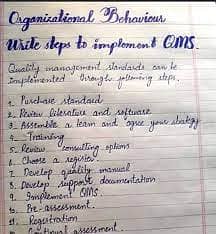 Organizational Behaviour
Write steps to implement QMS.
Quality management standards can be
implemented through following steps.
1. Purchase standard
2. Review literature and software
3. Assemble a team and agree your strategy
4. Training
5. Review consulting options
6. Choose a registrar
7. Develop quality manual
8. Develop support documentation
9. Implement QMS.
10. Pre-assessment.
11. Registration
assessment.